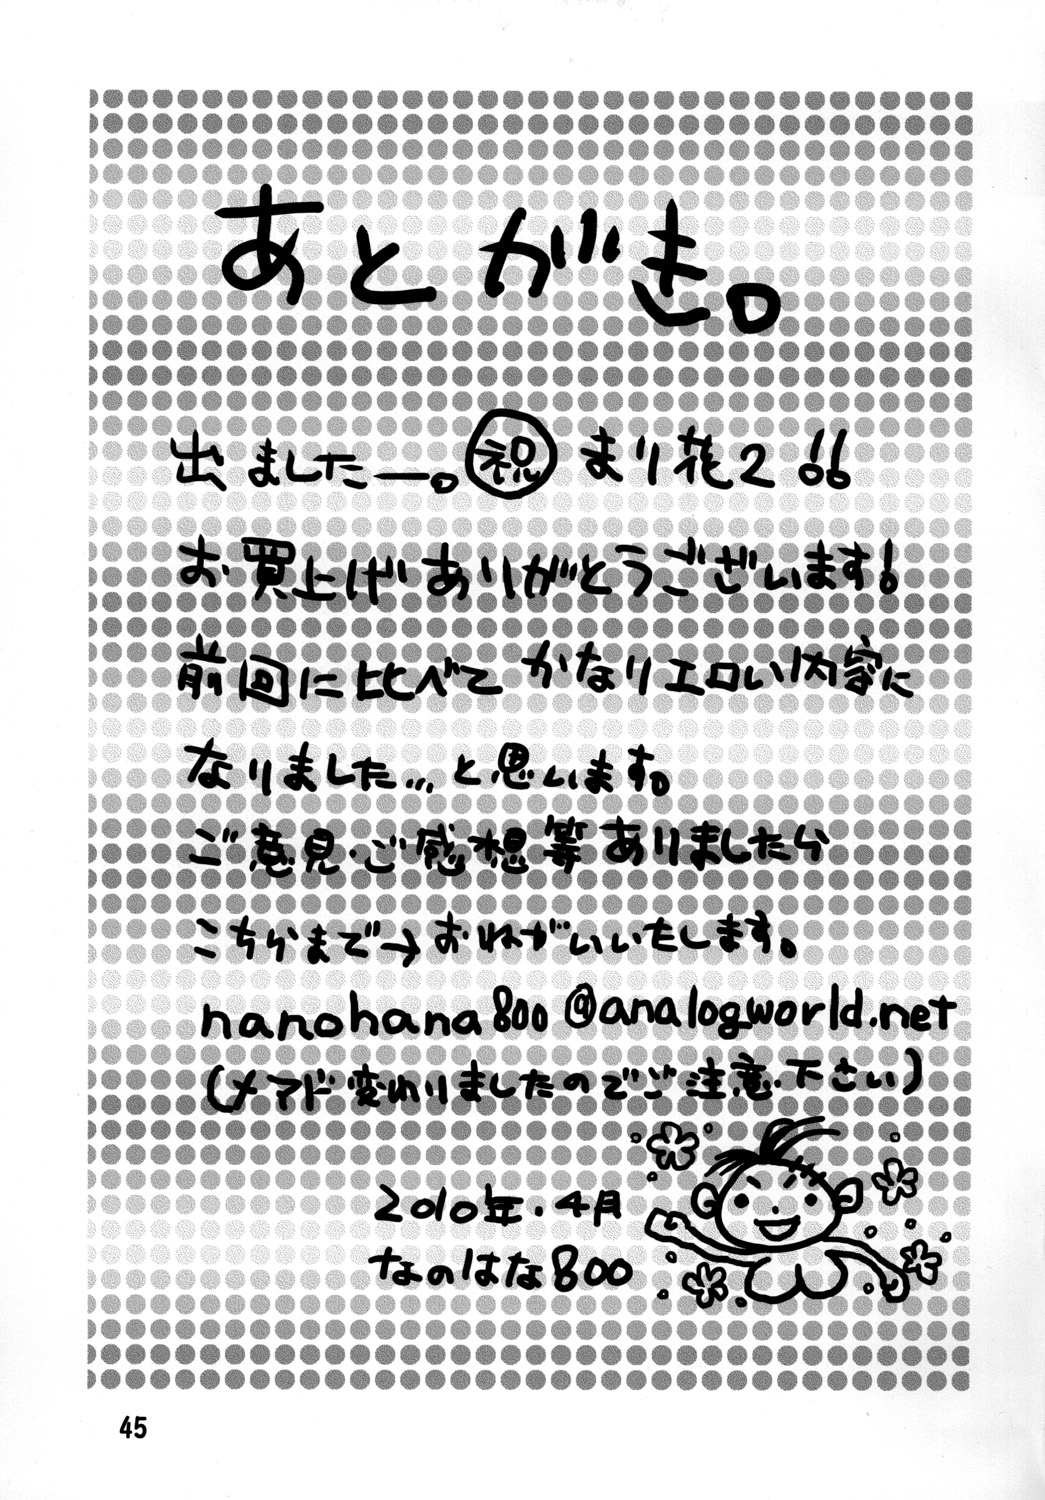 あとがき。
出ましたー。㊗まり花2!!
お買上げありがとうございます!
前回に比べてかなりエロい内容に
なりました…と思います。
ご意見・ご感想等ありましたら
こちらまで→おねがいいたします。
nanohana800@analogworld.net
(メアド変わりましたのでご注意下さい)
2010年・4月
なのはな800
45